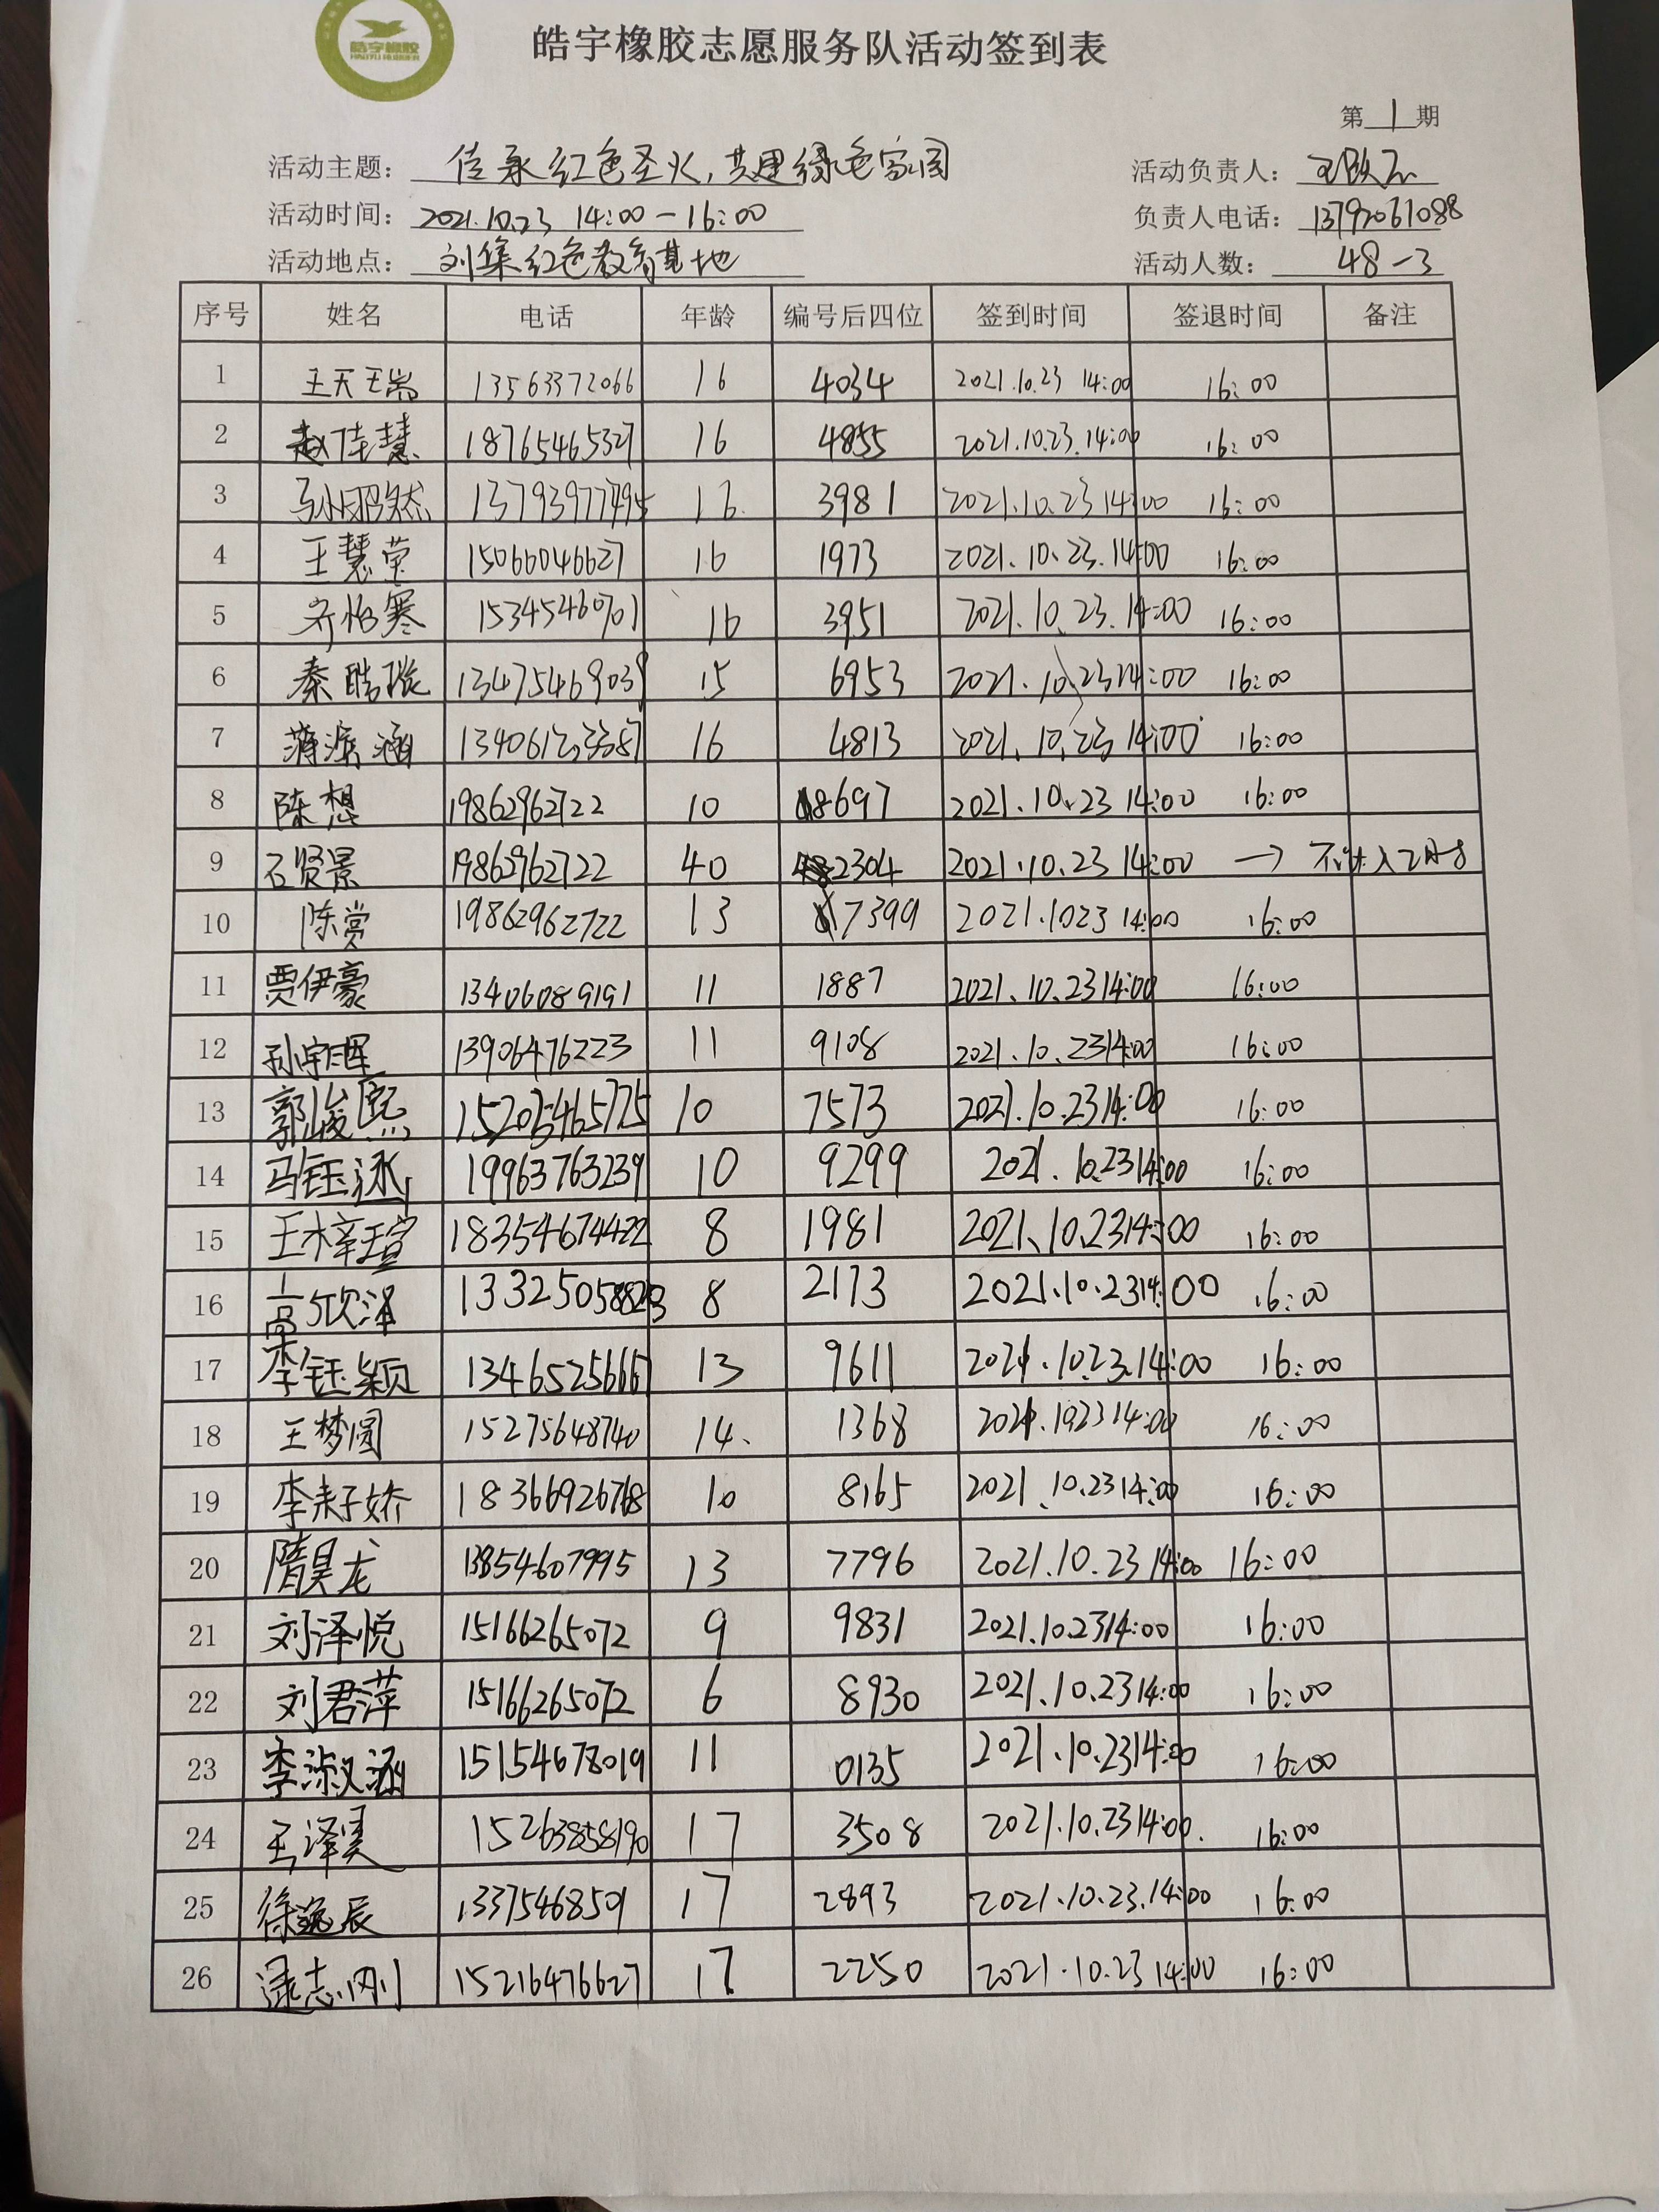 皓宇橡胶
皓宇橡胶志愿服务队活动签到表
第 1 期
活动主题： 传承红色圣火，共建绿色家园 活动负责人：
活动时间： 2021.10.23 14:00-16:00 负责人电话： 13792061088
活动地点： 刘集红色教育基地 活动人数： 48-3
序号 姓名 电话 年龄 编号后四位 签到时间 签退时间 备注
1 王天瑞 13563372066 16 4034 2021.10.23 14:00 16:00
2 赵佳慧 18765465327 16 4855 2021.10.23.14:00 16:00
3 孙昭然 13793977495 16 3981 2021.10.23 14:00 16:00
4 王慧莹 15066046627 16 1973 2021.10.23.14:00 16:00
5 齐怡寒 15345460701 16 3951 2021.10.23.14:00 16:00
6 秦皓璇 13475469039 15 6953 2021.10.23 14:00 16:00
7 薄滨涵 16 4813 2021.10.23 14:00 16:00
8 陈想 19862962722 10 8697 2021.10.23 14:00 16:00
9 石贤景 19862962722 40 2304 2021.10.23 14:00 → 不计入
10 陈赏 19862962722 13 7399 2021.1023 14:00 16:00
11 贾伊豪 13406089191 11 1887 2021.10.23 14:00 16:00
12 孙宇晖 13906476223 11 9108 2021.10.23 14:00 16:00
13 郭峻熙 10 7573 2021.10.23 14:00 16:00
14 马钰涵 19963763239 10 9299 2021.10.23 14:00 16:00
15 王梓瑄 18354674422 8 1981 2021.10.23 14:00 16:00
16 高欣泽 8 2173 2021.10.23 14:00 16:00
17 李钰颖 13465256667 13 9611 2021.10.23.14:00 16:00
18 王梦圆 15275648740 14. 1368 16:00
19 李耔娇 18366926768 10 8165 2021.10.23 14:00 16:00
20 隋昊龙 13854607995 13 7796 2021.10.23 14:00 16:00
21 刘泽悦 15166265072 9 9831 2021.10.23 14:00 16:00
22 刘君萍 15166265072 6 8930 2021.10.23 14:00 16:00
23 李淑涵 15154678019 11 0135 2021.10.23 14:00 16:00
24 王泽昊 15263858190 17 3508 2021.10.23 14:00. 16:00
25 徐逸辰 13375468501 17 2893 2021.10.23.14:00 16:00
26 逯志刚 15216476627 17 2250 2021.10.23 14:00 16:00